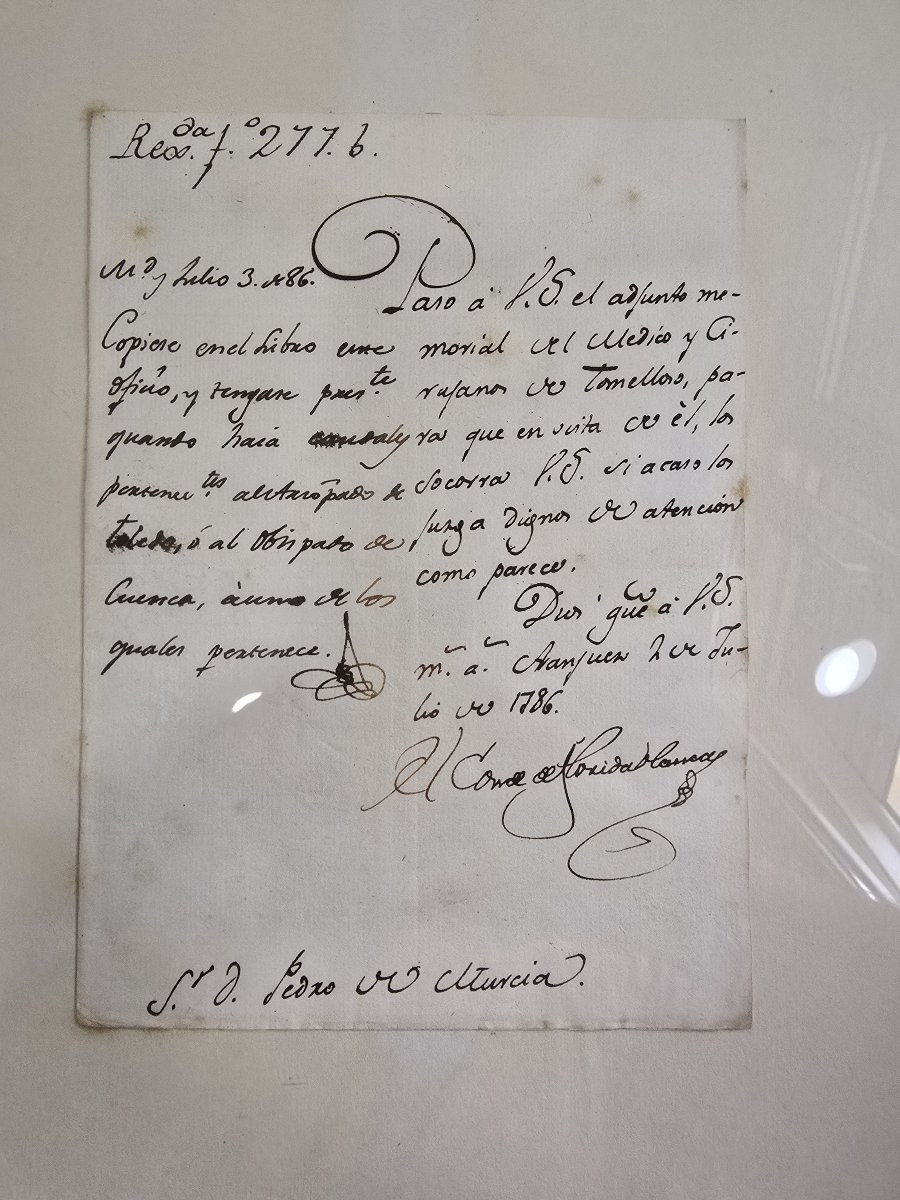 Reg.da f.o 277. b.
M.d y Julio 3. de 86.
Copiese en el Libro este
Ofiċio, y tengase pres.te
quando haia caudales
pertenec.tes al Arzōpado de
Toledo, ó al Obispado de
Cuenca, à uno de los
quales pertenece.
Paso à V.S. el adjunto me-
morial del Medico y Ci-
rujanos de Tomelloso, pa-
ra que en vista de èl, los
socorra V.S. si acaso los
juzga dignos de atención
como parece.
Dios gūe à V.S.
m.s a.s Aranjuez 2 de Ju-
lio de 1786.
El Conde de Floridablanca
S.r D. Pedro de Murcia.